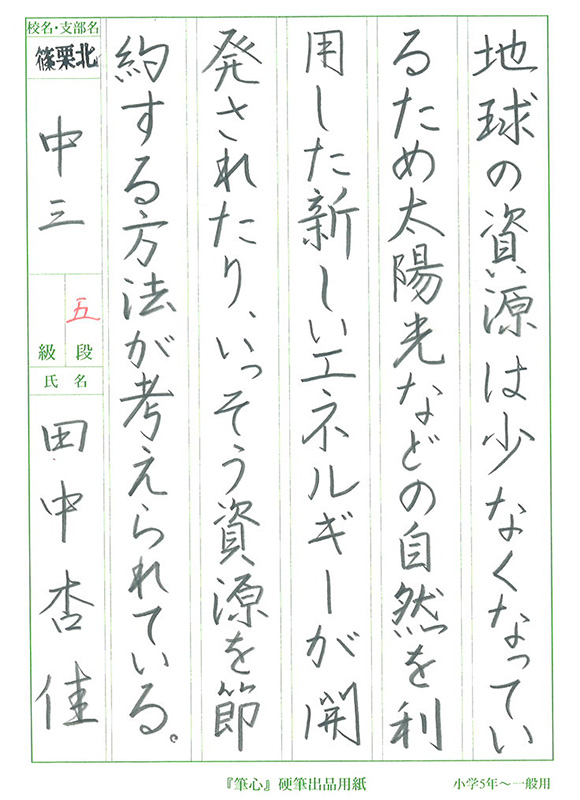 地球の資源は少なくなってい
るため太陽光などの自然を利
用した新しいエネルギーが開
発されたり、いっそう資源を節
約する方法が考えられている。
校名・支部名
篠栗北
中三
五
段
級
氏名
田中杏佳
『筆心』硬筆出品用紙
小学5年〜一般用